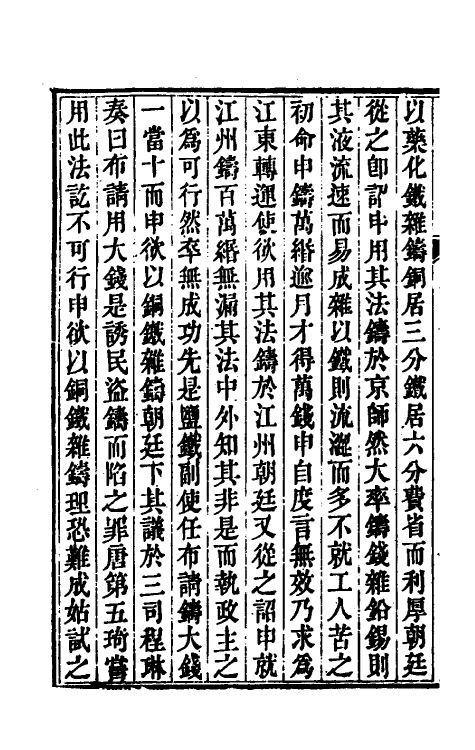 以藥化鐵雜鑄銅居三分鐵居六分費省而利厚朝廷
從之卽詔申用其法鑄於京師然大率鑄錢雜鉛錫則
其液流速而易成雜以鐵則流澀而多不就工人苦之
初命申鑄萬緡逾月才得萬錢申自度言無效乃求爲
江東轉運使欲用其法鑄於江州朝廷又從之詔申就
江州鑄百萬緡無漏其法中外知其非是而執政主之
以爲可行然卒無成功先是鹽鐵副使任布請鑄大錢
一當十而申欲以銅鐵雜鑄朝廷下其議於三司程琳
奏曰布請用大錢是誘民盜鑄而陷之罪唐第五琦嘗
用此法訖不可行申欲以銅鐵雜鑄理恐難成姑試之